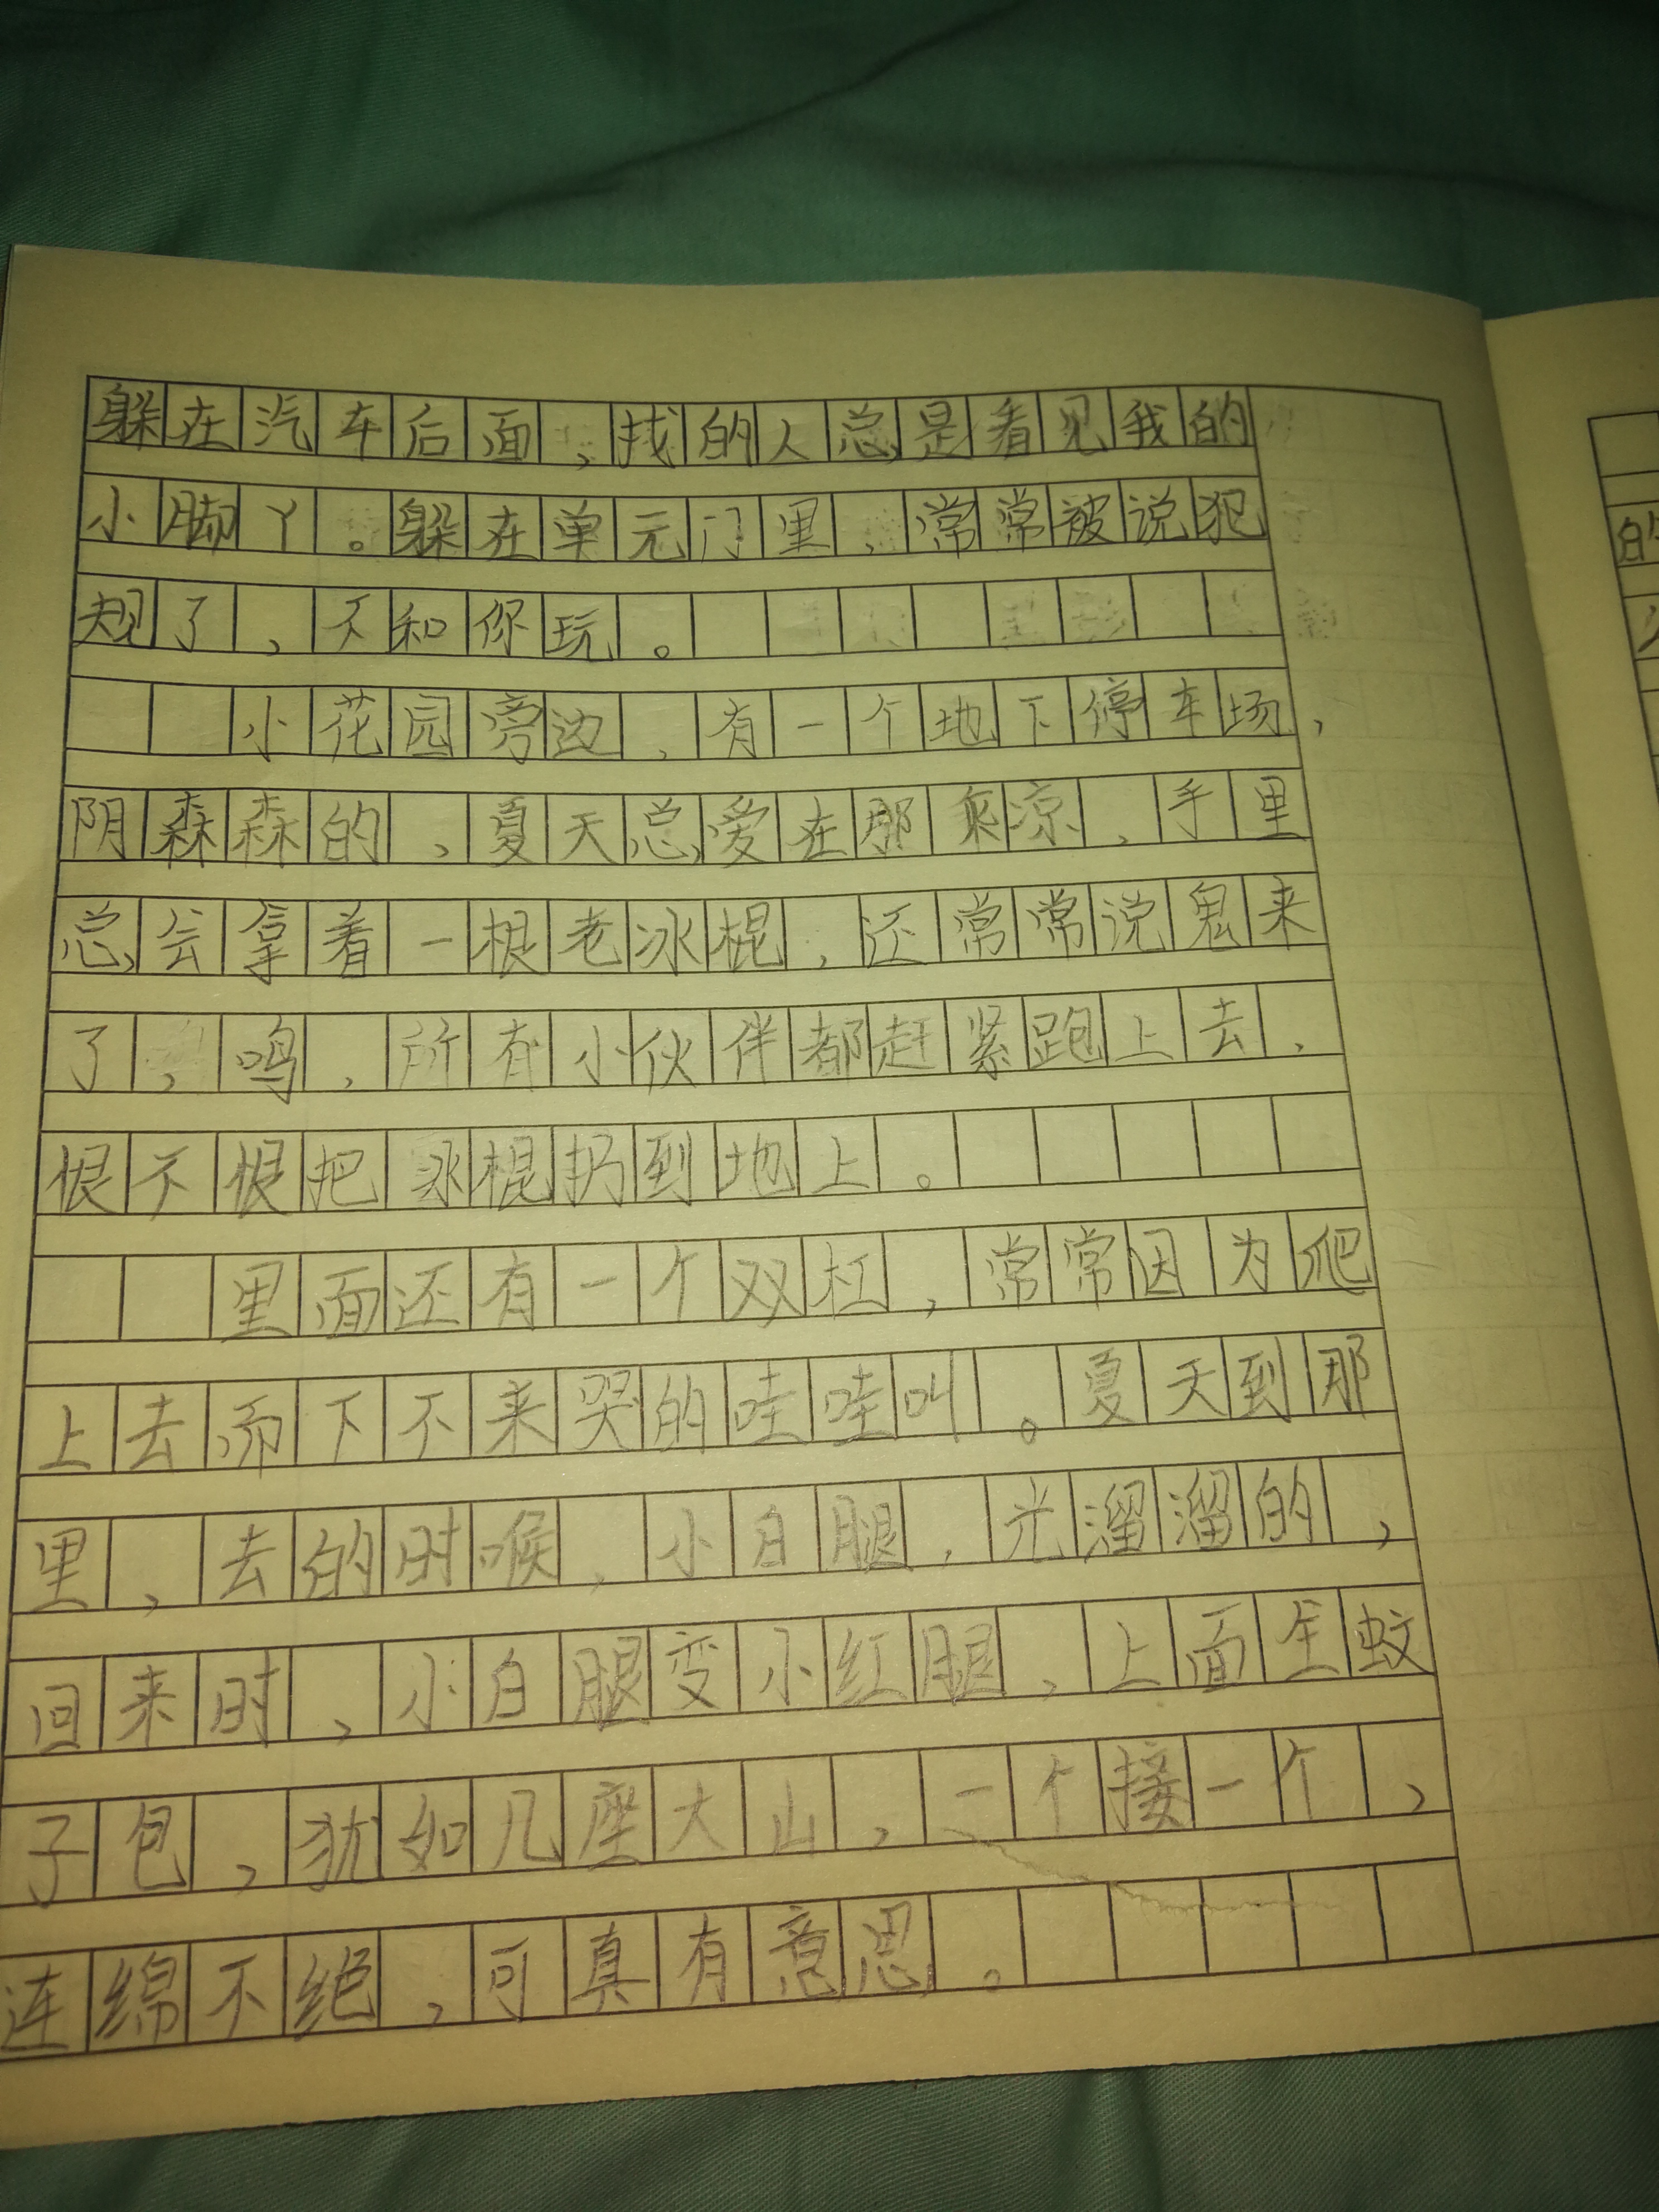 躲在汽车后面，找的人总是看见我的
小脚丫。躲在单元门里，常常被说犯
规了，不和你玩。
小花园旁边，有一个地下停车场，
阴森森的，夏天总爱在那乘凉，手里
总会拿着一根老冰棍，还常常说鬼来
了，鸣，所有小伙伴都赶紧跑上去，
恨不恨把冰棍扔到地上。
里面还有一个双杠，常常因为爬
上去而下不来哭的哇哇叫。夏天到那
里，去的时候，小白腿，光溜溜的，
回来时，小白腿变小红腿，上面全蚊
子包，犹如几座大山，一个接一个，
连绵不绝，可真有意思。
的